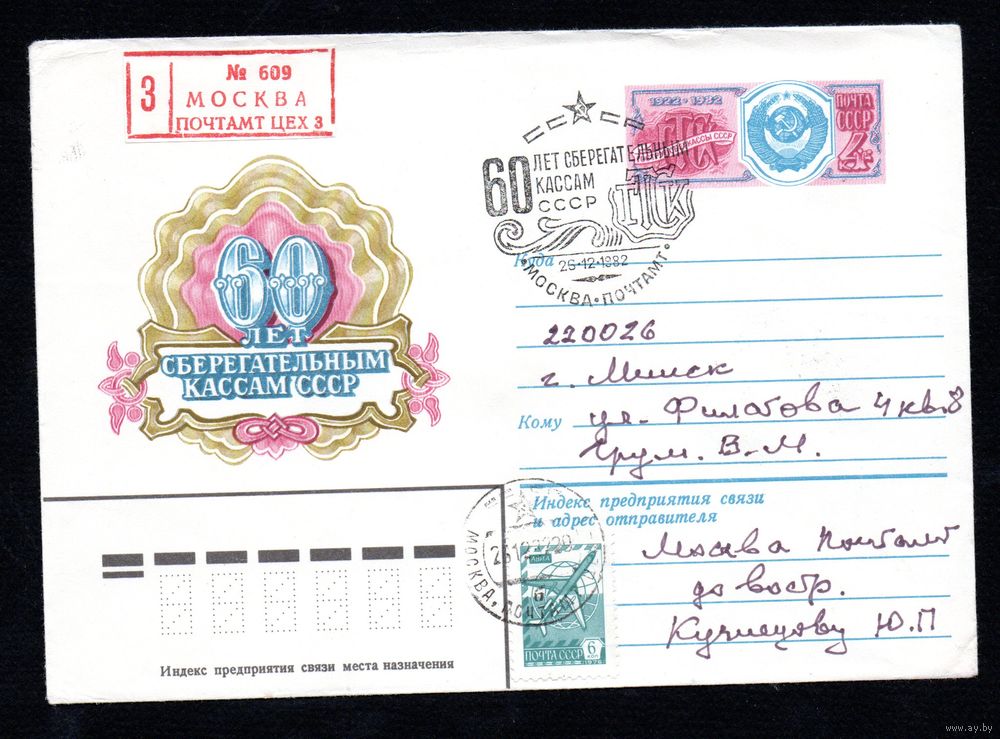 З
№ 609
МОСКВА
ПОЧТАМТ ЦЕХ 3
1922 • 1982
ГТСК
ПОЧТА
СССР
4к
СССР
60 ЛЕТ СБЕРЕГАТЕЛЬНЫМ
КАССАМ
СССР
ГТСК
26-12-1982
• МОСКВА • ПОЧТАМТ •
60
ЛЕТ
СБЕРЕГАТЕЛЬНЫМ
КАССАМ СССР
Куда
220026
г. Минск
Кому ул. Филатова 4 кв. 8
Грум. В.М.
Индекс предприятия связи
и адрес отправителя
Москва Почтамт
до востр.
Кузнецову Ю.П
МОСКВА
АВИА
ПОЧТА СССР
6
КОП
1976
Индекс предприятия связи места назначения
www.ay.by